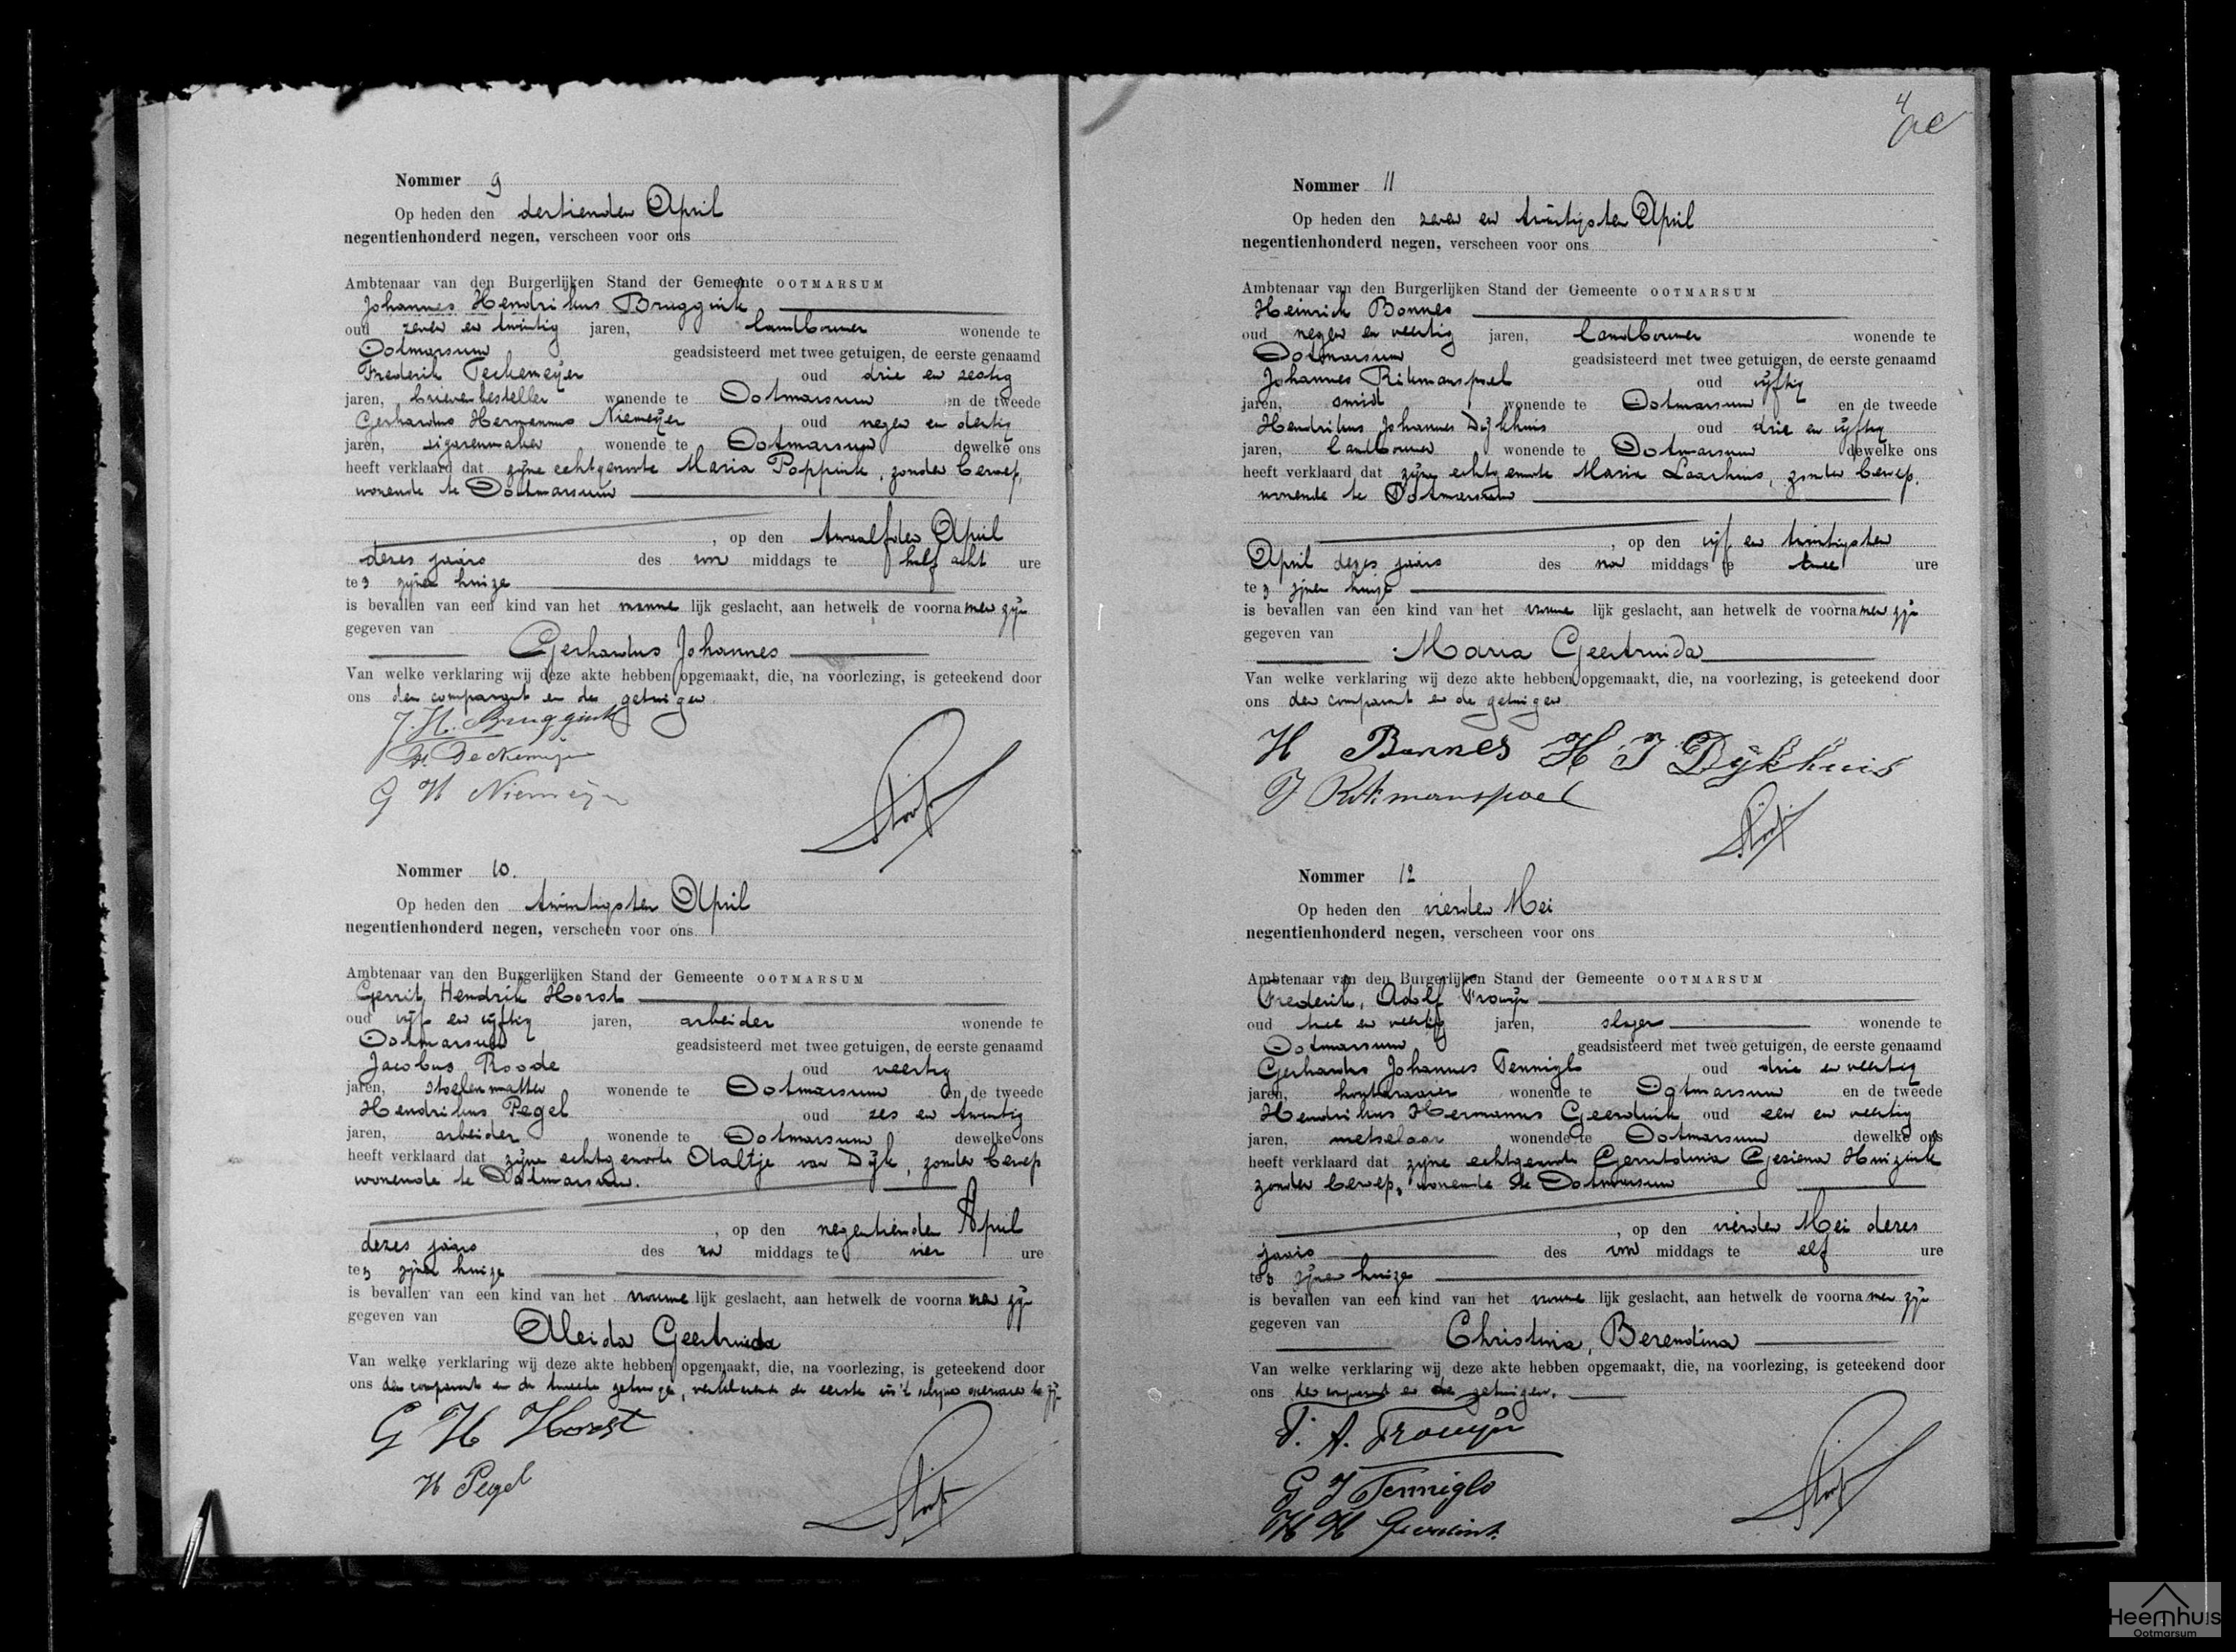 Nommer 9
Op heden den dertienden April
negentienhonderd negen, verscheen voor ons
Ambtenaar van den Burgerlijken Stand der Gemeente OOTMARSUM
Johannes Hendrikus Bruggink
oud zeven en twintig jaren, landbouwer wonende te
Ootmarsum geadsisteerd met twee getuigen, de eerste genaamd
Frederik Deckemeijer oud drie en zestig
jaren, brievenbesteller wonende te Ootmarsum en de tweede
Gerhardus Hermannus Niemeijer oud negen en dertig
jaren, sigarenmaker wonende te Ootmarsum dewelke ons
heeft verklaard dat zijne echtgenoote Maria Poppink, zonder beroep,
wonende te Ootmarsum
, op den twaalfden April
dezes jaars des voor middags te half acht ure
te zijnen huize
is bevallen van een kind van het manne lijk geslacht, aan hetwelk de voorna men zijn
gegeven van
Gerhardus Johannes
Van welke verklaring wij deze akte hebben opgemaakt, die, na voorlezing, is geteekend door
ons den comparant en de getuigen.
J. H. Bruggink
F. Deckemeijer
G H Niemeijer
Nommer 10.
Op heden den twintigsten April
negentienhonderd negen, verscheen voor ons
Ambtenaar van den Burgerlijken Stand der Gemeente OOTMARSUM
Gerrit Hendrik Horst
oud vijf en vijftig jaren, arbeider wonende te
Ootmarsum geadsisteerd met twee getuigen, de eerste genaamd
Jacobus Roode oud veertig
jaren, stoelenmatter wonende te Ootmarsum en de tweede
Hendrikus Pegel oud zes en twintig
jaren, arbeider wonende te Ootmarsum dewelke ons
heeft verklaard dat zijne echtgenoote Aaltje van Dijk, zonder beroep
wonende te Ootmarsum.
, op den negentienden April
dezes jaars des na middags te vier ure
tes zijnen huize
is bevallen van een kind van het vrouwe lijk geslacht, aan hetwelk de voorna men zijn
gegeven van
Aleida Geertruida
Van welke verklaring wij deze akte hebben opgemaakt, die, na voorlezing, is geteekend door
ons den comparant en de tweede getuige, verklarende de eerste in 't schrijven onervaren te zijn
G H Horst
H Pegel
4
Nommer 11
Op heden den zeven en twintigsten April
negentienhonderd negen, verscheen voor ons
Ambtenaar van den Burgerlijken Stand der Gemeente OOTMARSUM
Heinrich Bonnes
oud negen en veertig jaren, landbouwer wonende te
Ootmarsum geadsisteerd met twee getuigen, de eerste genaamd
Johannes Rikmanspoel oud vijftig
jaren, smid wonende te Ootmarsum en de tweede
Hendrikus Johannes Dijkhuis oud drie en vijftig
jaren, landbouwer wonende te Ootmarsum dewelke ons
heeft verklaard dat zijne echtgenoote Maria Laarhuis, zonder beroep,
wonende te Ootmarsum
, op den vijf en twintigsten
April dezes jaars des na middags te twee ure
te zijnen huize
is bevallen van een kind van het vrouwe lijk geslacht, aan hetwelk de voorna men zijn
gegeven van
Maria Geertruida
Van welke verklaring wij deze akte hebben opgemaakt, die, na voorlezing, is geteekend door
ons den comparant en de getuigen.
H Bonnes H J Dijkhuis
J Rikmanspoel
Nommer 12
Op heden den vierden Mei
negentienhonderd negen, verscheen voor ons
Ambtenaar van den Burgerlijken Stand der Gemeente OOTMARSUM
Frederik, Adolf Frowijn
oud twee en veertig jaren, slager wonende te
Ootmarsum geadsisteerd met twee getuigen, de eerste genaamd
Gerhardus Johannes Tenniglo oud drie en veertig
jaren, wonende te Ootmarsum en de tweede
Hendrikus Hermannus Geerdink oud een en veertig
jaren, metselaar wonende te Ootmarsum dewelke ons
heeft verklaard dat zijne echtgenoote Gerritdina Gesiena Huizink
zonder beroep, wonende te Ootmarsum
, op den vierden Mei dezes
jaars des voor middags te elf ure
te zijnen huize
is bevallen van een kind van het vrouwe lijk geslacht, aan hetwelk de voorna men zijn
gegeven van
Christina, Berendina
Van welke verklaring wij deze akte hebben opgemaakt, die, na voorlezing, is geteekend door
ons den comparant en de getuigen.
F. A. Frowijn
G J Tenniglo
H H Geerdink
Heemhuis
Ootmarsum